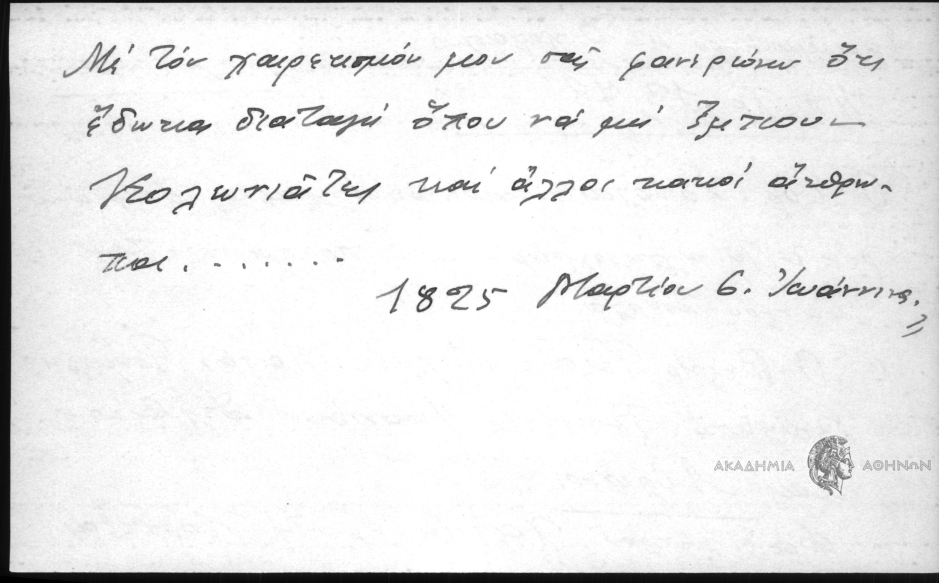 Μέ τόν χαιρετισμόν μου σᾶς φανερώνω ὅτι
ἔδωκα διαταγή ὅπου νά μή ἔμπουν
Κολωνιᾶτες καί ἄλλοι κακοί ἄνθρω-
ποι.......
1825 Μαρτίου 6. Ἰωάννινα.
ΑΚΑΔΗΜΙΑ ΑΘΗΝΩΝ